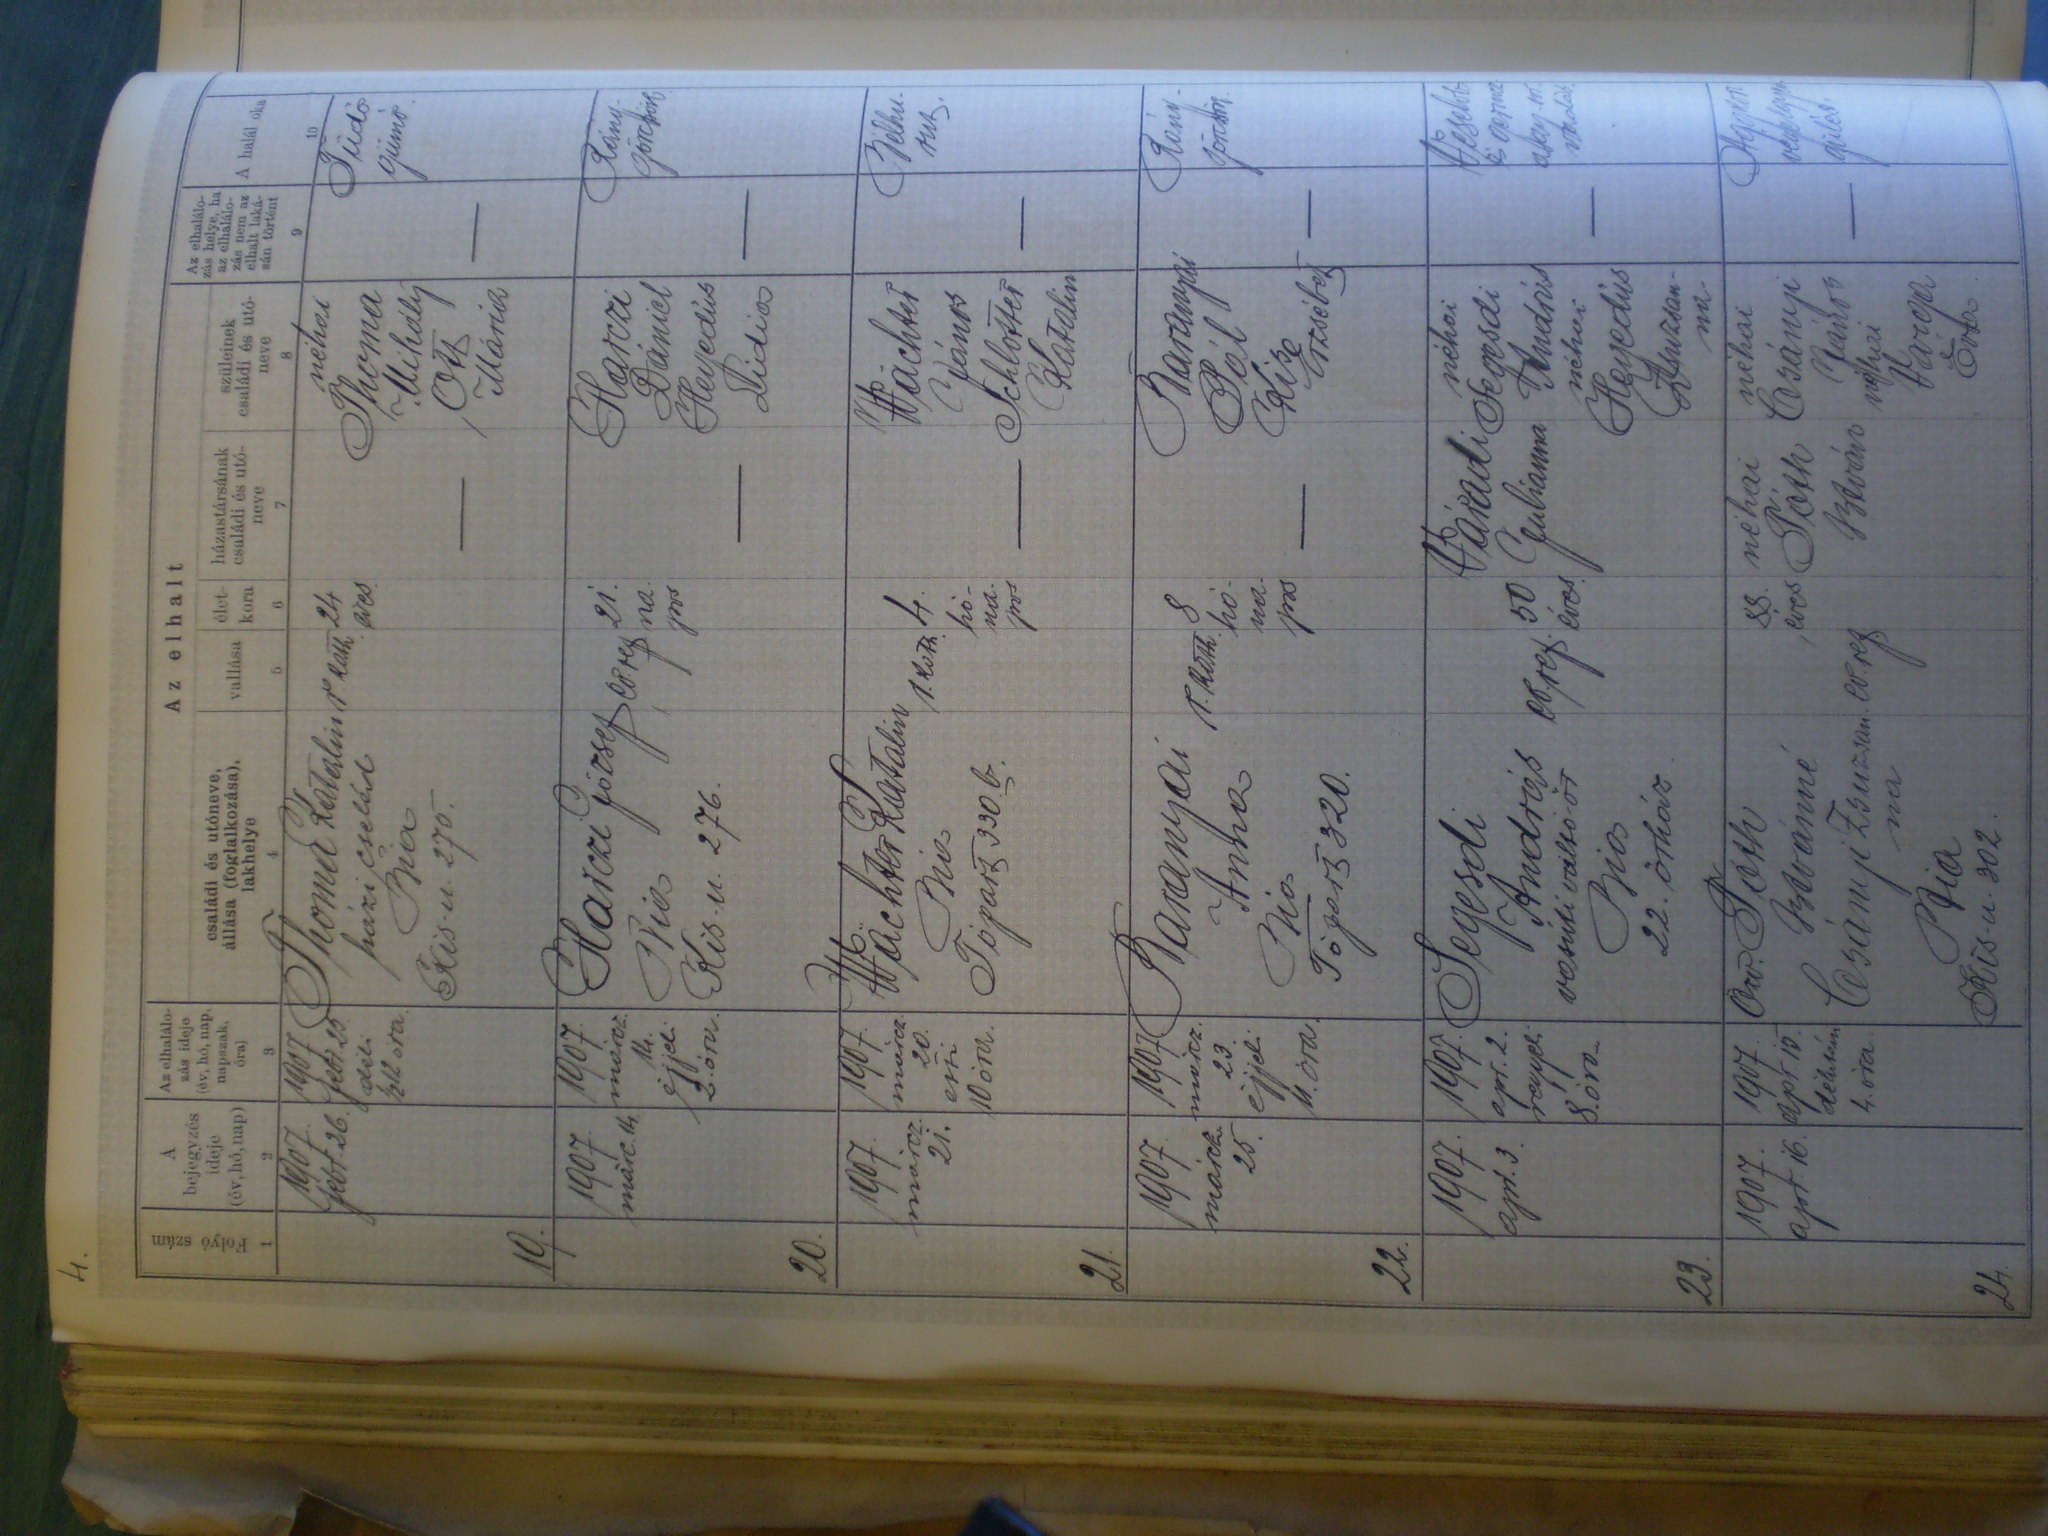 4.
Az elhalt
Folyó szám
A bejegyzés ideje (év, hó, nap)
Az elhalálo-
zás ideje
(év, hó, nap,
napszak,
óra)
családi és utóneve,
állása (foglalkozása),
lakhelye
vallása
élet-
kora
házastársának
családi és utó-
neve
szüleinek
családi és utó-
neve
Az elhalálo-
zás helye, ha
az elhalálo-
zás nem az
elhalt laká-
sán történt
A halál oka
1 2 3 4 5 6 7 8 9 10
19.
1907.
febr. 26.
1907
febr. 25.
déli
½12 óra.
Thoma Katalin
házi cseléd
Bia
Kis-u. 275.
r. kath.
24
éves.
—
néhai
Thoma
Mihály
Ott
Mária
—
Tüdő
gümő.
20.
1907.
márc. 14.
1907.
márcz.
14.
éjjeli
2. óra.
Harczi József
Bia
Kis-u. 276.
ev. ref.
21.
na-
pos
—
Harczi
Dániel
Hevedüs
Lidia
—
Rány-
görcsök.
21.
1907.
márcz.
21.
1907.
márcz.
20.
esti
10 óra.
Wachter Katalin
Bia
Tópart 330 b.
r. kath.
4.
hó-
na-
pos
—
Wachter
János
Schlotter
Katalin
—
Bélhu-
rut.
22.
1907.
márcz.
25.
1907.
márcz.
23.
éjjeli
11. óra.
Baranyai
Anna
Bia
Tópart 320.
r. kath.
8
hó-
na-
pos
—
Baranyai
Pál
Erzsébet
—
Rány-
görcsök.
23.
1907.
apr. 3.
1907.
apr. 2.
reggeli
8. óra.
Segesdi
András
vasúti váltó-őr
Bia
22. őrház.
ev. ref.
50
éves.
Váradi
Julianna
néhai
Segesdi
András
néhai
Hegedüs
Zsuzsan-
na.
—
24.
1907.
apr. 16.
1907.
apr. 15.
délután
4. óra.
Özv. Tóth
Istvánné
Csányi Zsuzsan-
na
Bia
Kis-u. 302.
ev. ref.
88.
éves
néhai
Tóth
István
néhai
Csányi
János
néhai
Varga
Éva
—